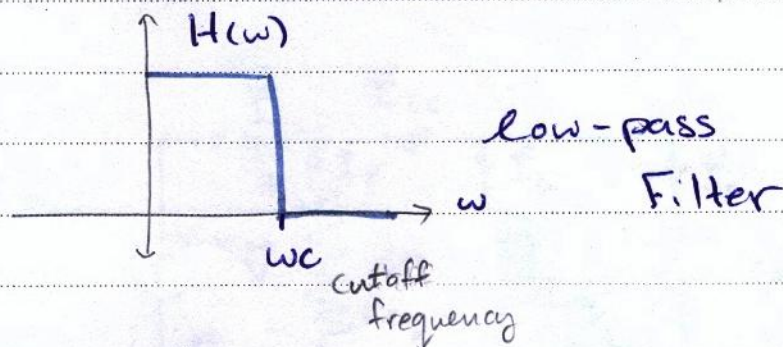 H(ω)
low-pass
Filter
ω
ωc
cutoff
frequency